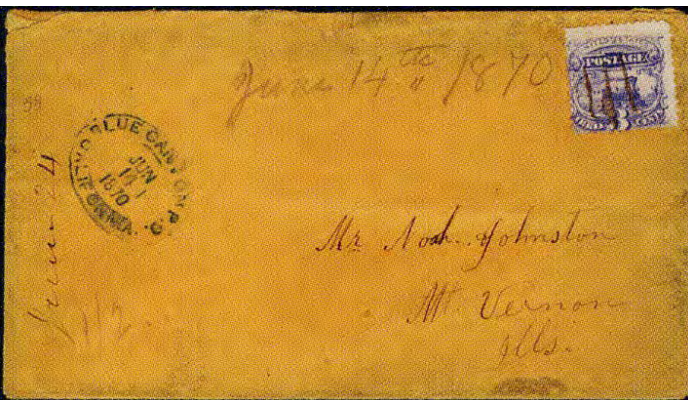 June 14th 1870
POSTAGE
BLUE CANYON P.O.
JUN
14
1870
CALIFORNIA.
June 24
1/2
Mr Noah Johnston
Mt. Vernon
Ills.